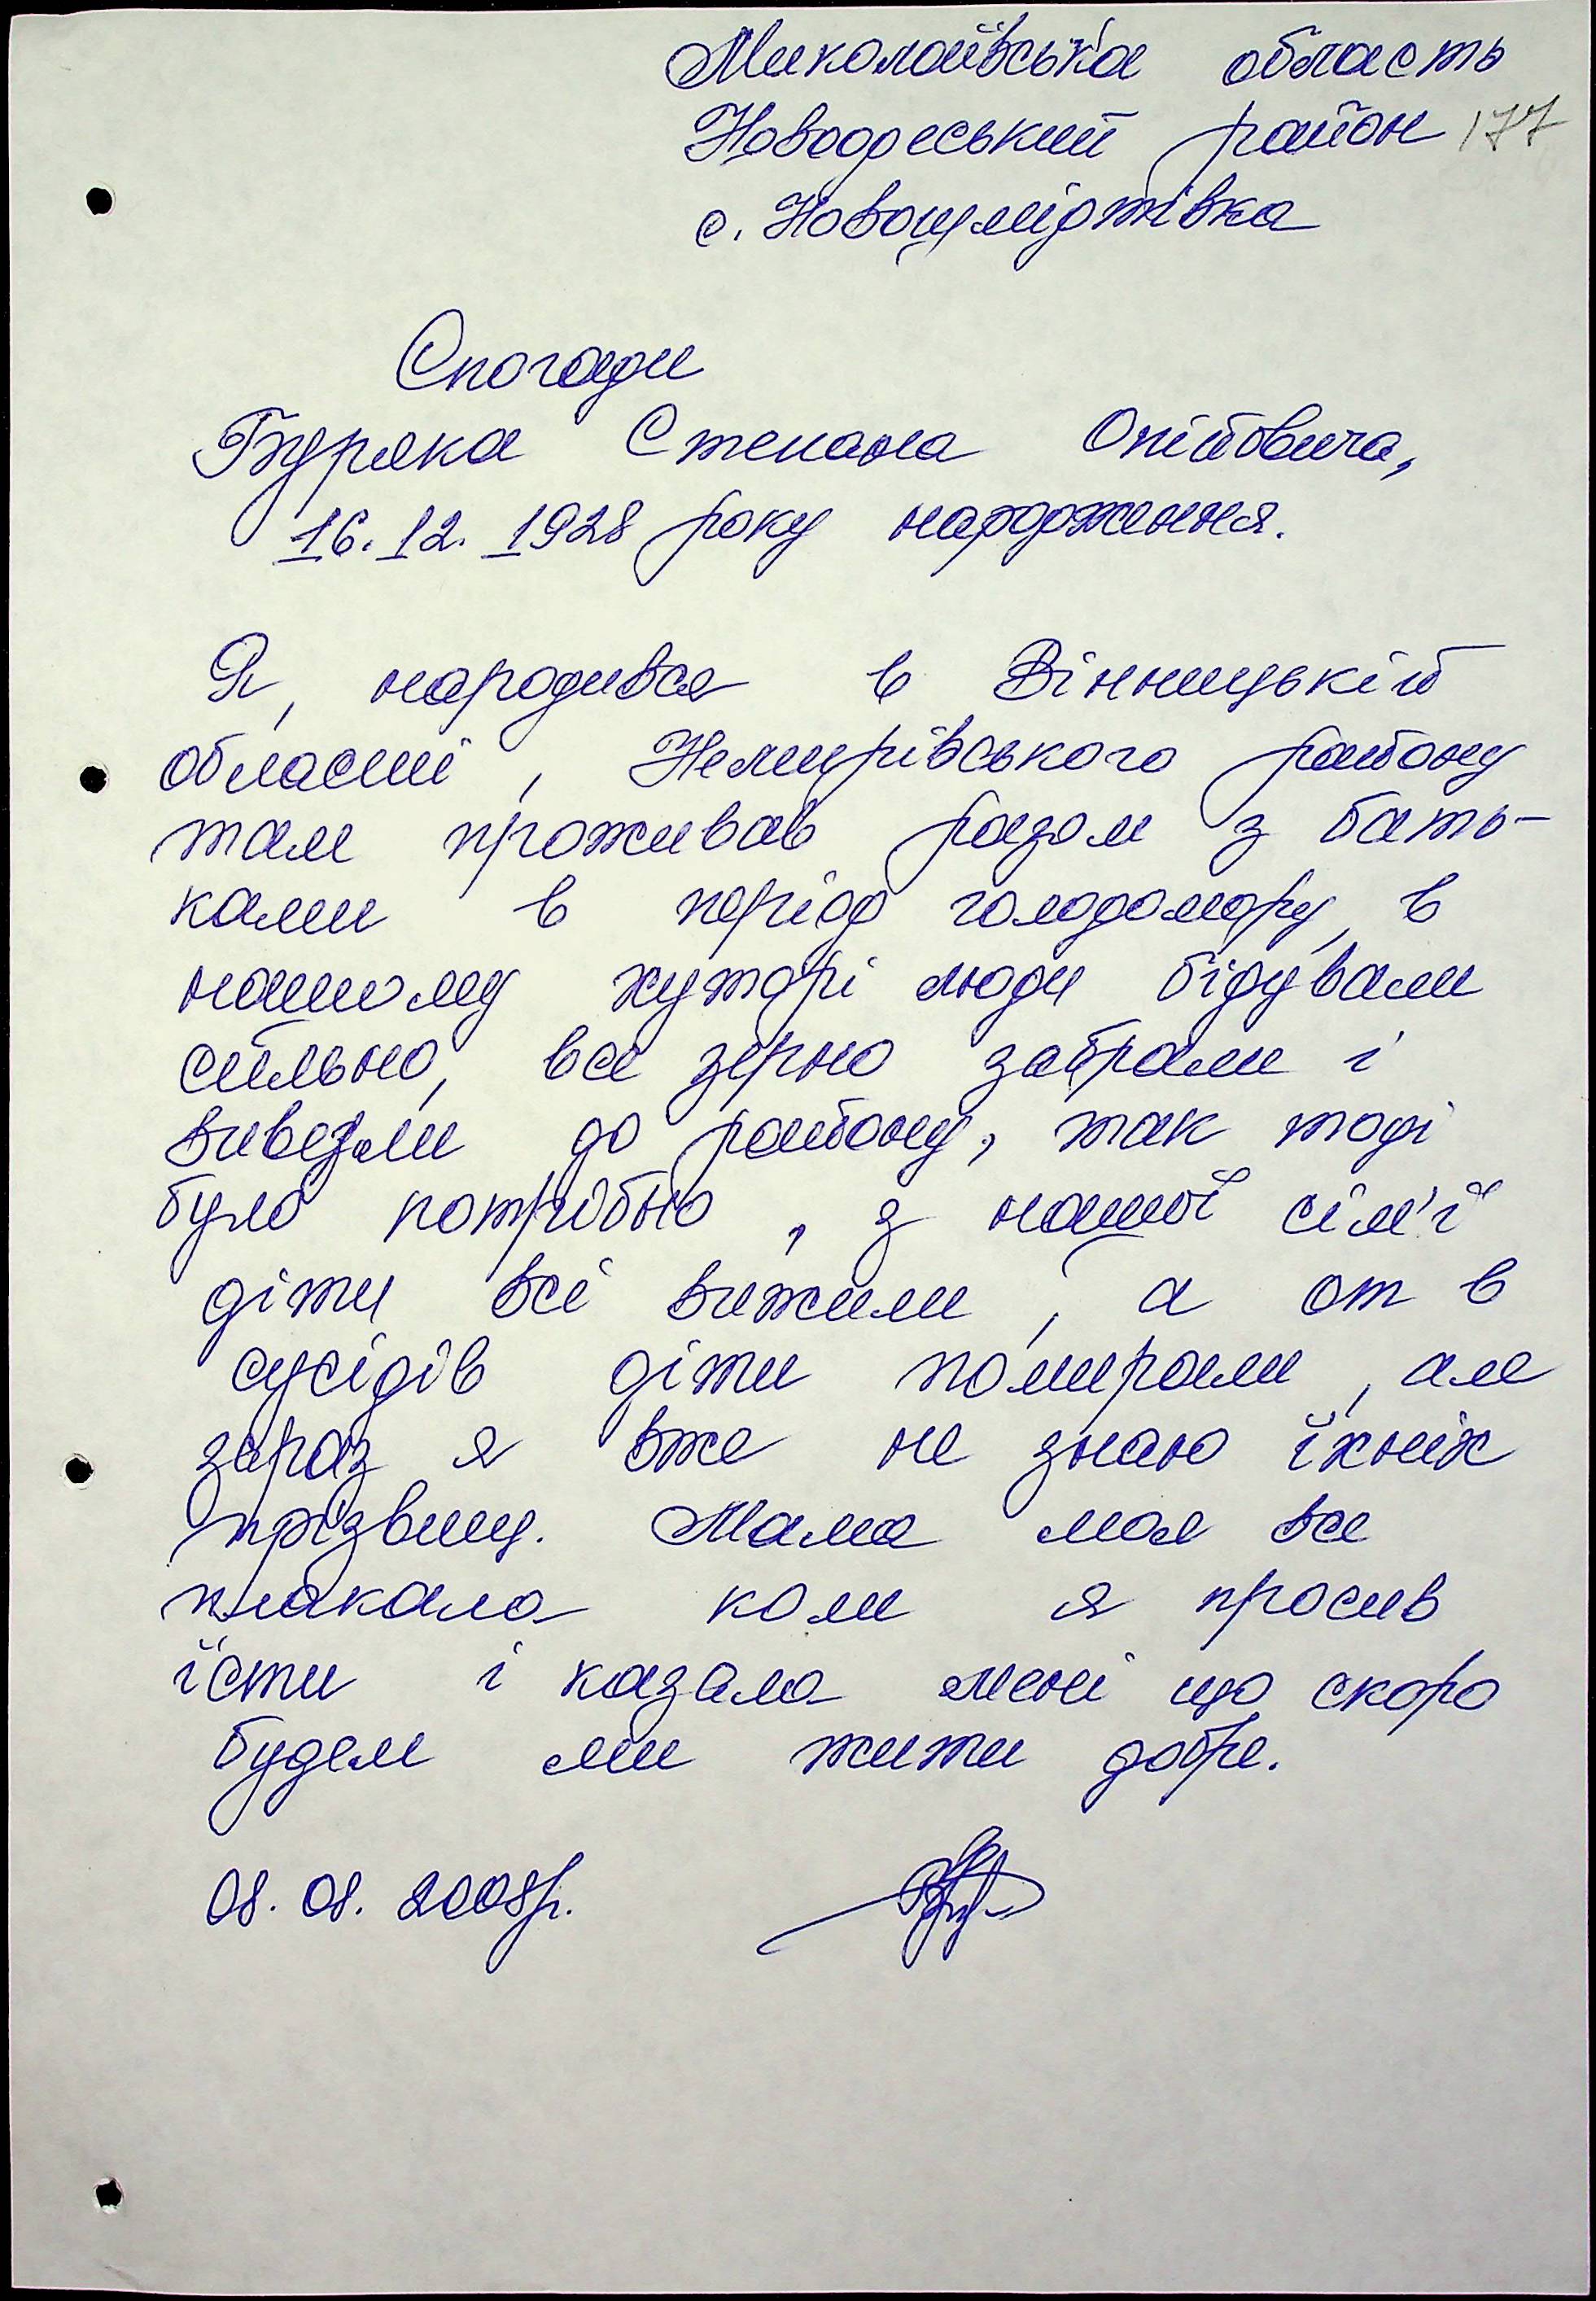 Миколаївська область
Новоодеський район 177
с. Новошмідтівка
Спогади
Буряка Степана Опійовича,
16.12.1928 року народження.
Я, народився в Вінницькій
області, Немирівського району
там проживав разом з бать-
ками в період голодомору, в
нашому хуторі люди бідували
сильно, все зерно забрали і
вивезли до району, так тоді
було потрібно, з нашої сім'ї
діти всі вижили, а от в
сусідів діти помирали, але
зараз я вже не знаю їхніх
прізвищ. Мама моя все
плакала коли я просив
їсти і казала мені що скоро
будем ми жити добре.
08.08.2008р.